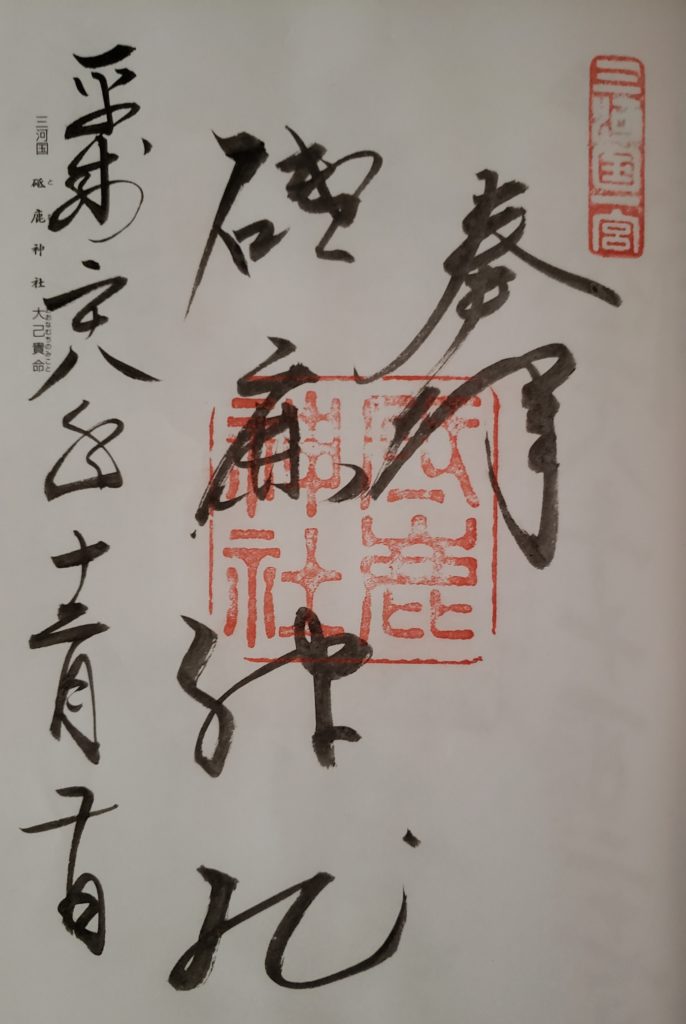 三河国一宮
奉拝
砥鹿神社
砥鹿神社
平成二十八年十二月
三河国 砥鹿神社 大己貴命
と
おおなむちのみこと